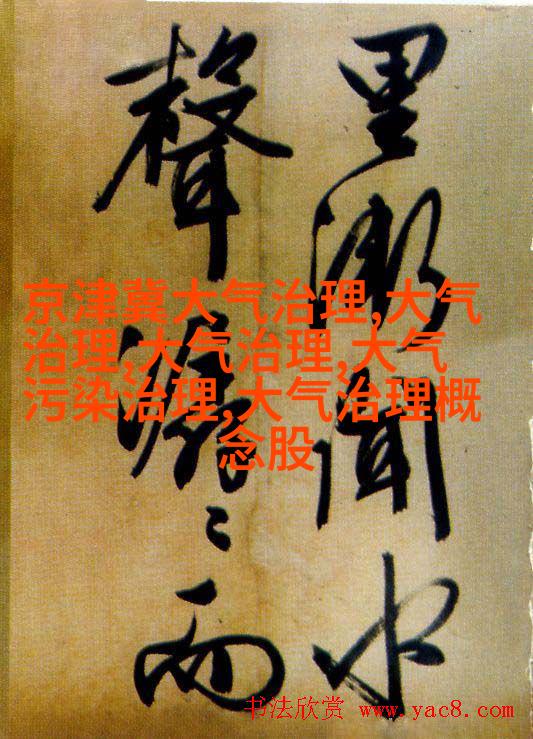 里渐闻水
聲潺〻而
京津冀大气治理,大气
治理,大气治理,大气
污染治理,大气治理概
念股
书法欣赏 www.yac8.com